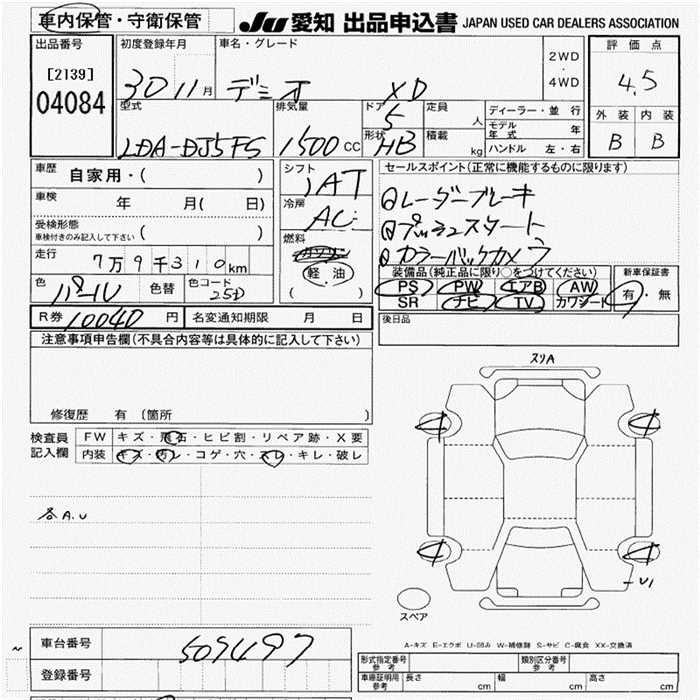 車内保管・守衛保管
JU 愛知 出品申込書 JAPAN USED CAR DEALERS ASSOCIATION
出品番号 初度登録年月 車名・グレード 2WD ・ 4WD 評価点
[2139] 30 11月 デミオ XD 4.5
04084
型式 排気量 ドア 定員 ディーラー・並行 外装 内装
LDA-DJ5FS 1500 CC 5 人 モデル年式 年 B B
形状 HB 積載 kg ハンドル 左・右
車歴 自家用・( ) シフト セールスポイント(正常に機能するものに限ります)
車検 年 月( 日) AT ①レーダーブレーキ
受検形態 冷房 AC ②プッシュスタート
車検付きのみ記入して下さい ( ) 燃料 ③カラーバックカメラ
走行 7万9千310km ガソリン 装備品(純正品に限り○をつけてください) 新車保証書
軽油 PS PW エアB AW 有・無
色 パール 色替 色コード 25D ( ) SR ナビ TV カワシート
R券 10040 円 名変通知期限 月 日 後日品
注意事項申告欄(不具合内容等は具体的に記入して下さい)
スリA
修復歴 有 (箇所
検査員 FW キズ・飛石・ヒビ割・リペア跡・X要
記入欄 内装 キズ・汚レ・コゲ・穴・スレ・キレ・破レ
各A.U
-U1
スペア
A-キズ E-エクボ U-凹み W-補修跡 S-サビ C-腐食 XX-交換済
車台番号 509497
登録番号
形式指定番号 参考 類別区分番号 参考
車庫証明用 参考 長さ cm 幅 cm 高さ cm